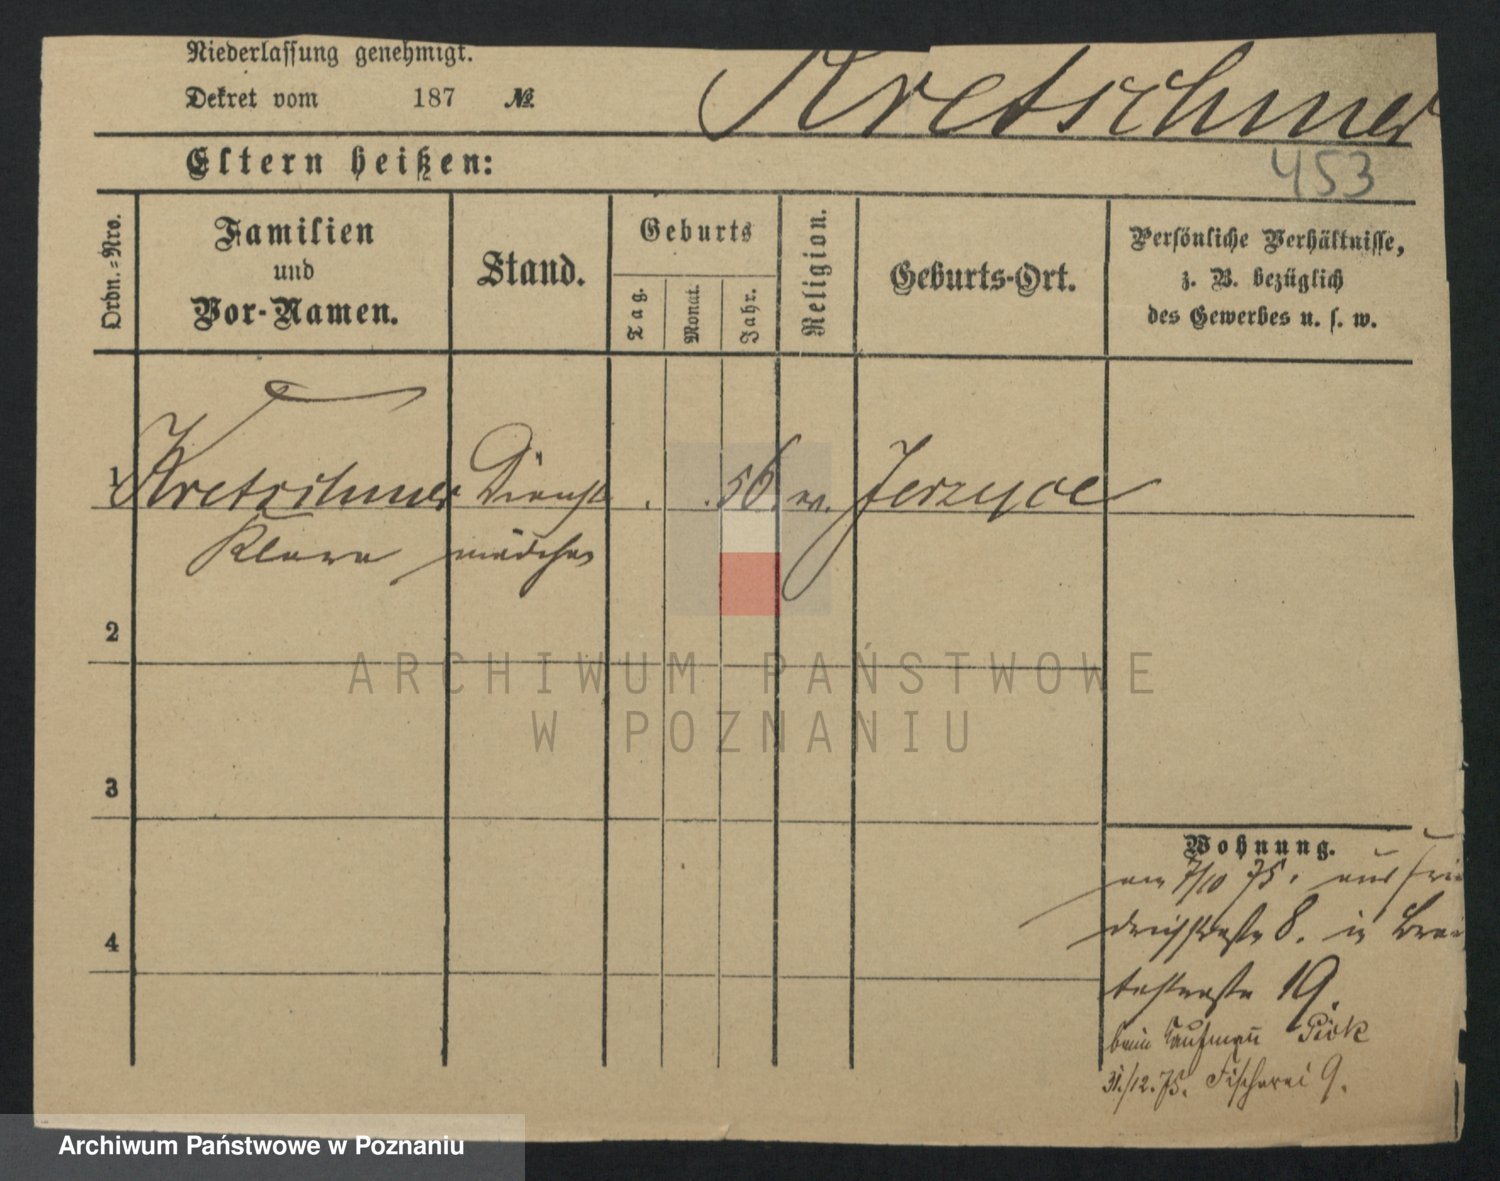 Niederlassung genehmigt.
Dekret vom 187 №
Kretschmer
Eltern heißen:
453
Ordn.-Nro.
Familien
und
Vor-Namen.
Stand.
Geburts
Tag.
Monat.
Jahr.
Religion.
Geburts-Ort.
Persönliche Verhältnisse,
z. B. bezüglich
des Gewerbes u. s. w.
1 Kretschmer Dienst . . 56. ev. Jerzyce
Klara mädchen
2
3
4
Wohnung.
am 7/10 75. aus Frie
drichstraße 8. in Brei
testraße 19.
beim Kaufmann
31./12.75. Fischerei 9.
ARCHIWUM PAŃSTWOWE
W POZNANIU
Archiwum Państwowe w Poznaniu